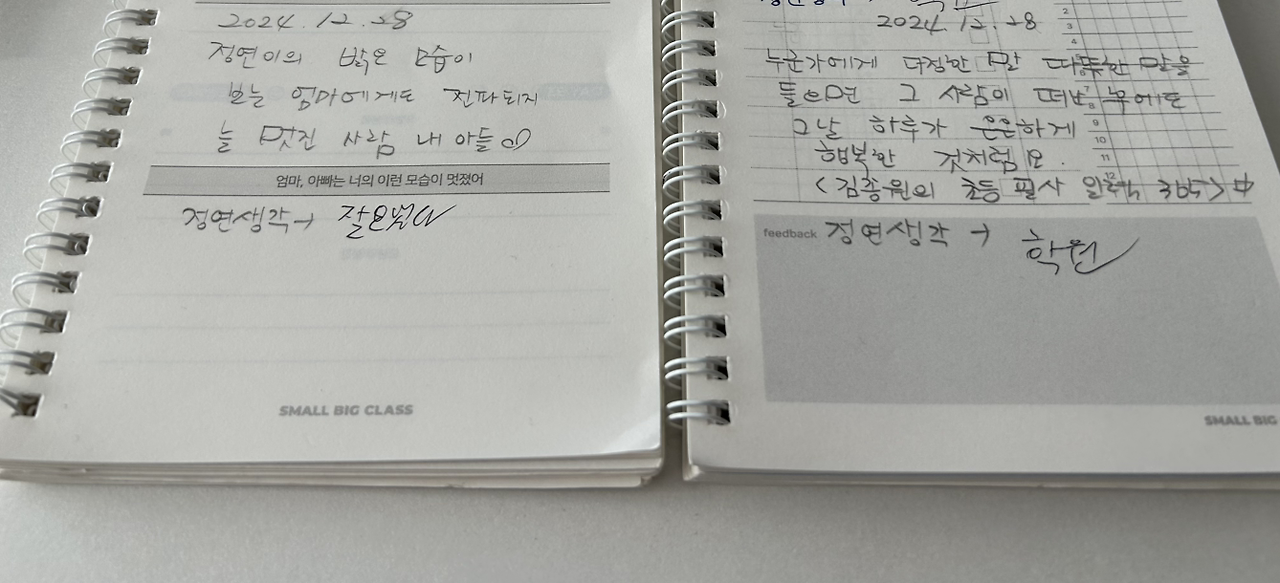 2024.12.28
정연이의 밝은 모습이
보는 엄마에게도 전파되지
늘 멋진 사람 내 아들
엄마, 아빠는 너의 이런 모습이 멋졌어
정연생각→
SMALL BIG CLASS
2024.12.28
누군가에게 다정한 말 따뜻한 말을
들으면 그 사람이 떠난 후에도
그날 하루가 은은하게
행복한 것처럼요.
<김종원의 초등 필사 일력 365> 中
feedback 정연생각 → 학원
SMALL BIG
2
3
4
9
10
11